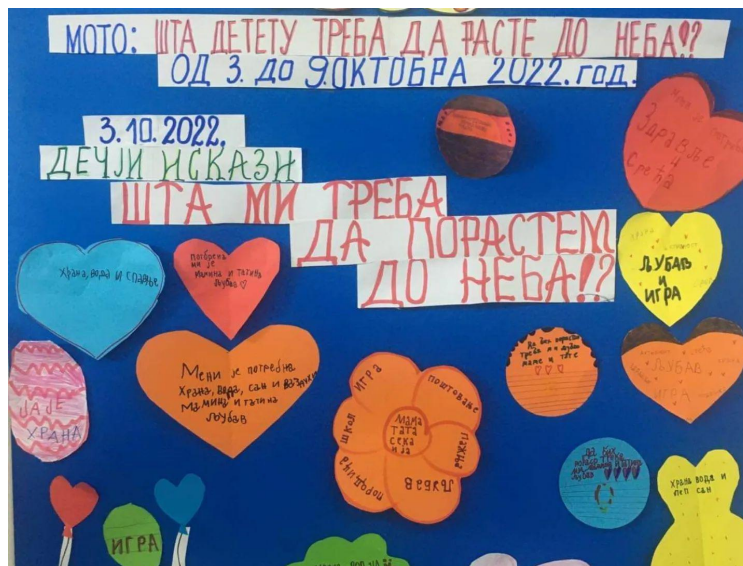 МОТО: ШТА ДЕТЕТУ ТРЕБА ДА РАСТЕ ДО НЕБА!?
ОД 3. ДО 9.ОКТОБРА 2022. год.
3.10.2022.
ДЕЧЈИ ИСКАЗИ
ШТА МИ ТРЕБА
ДА ПОРАСТЕМ
ДО НЕБА!?
Здравље
и
Срећа
Храна, вода и спавање
потребна
ми је
мамина и татина
љубав
ЉУБАВ
И
ИГРА
Мени је потребна
храна, вода, сан и ваздух
Мамина и татина
љубав
ИГРА
ПОШТОВАЊЕ
ПАЖЊА
ЉУБАВ
ПОРОДИЦА
ШКОЛА
Мама
ТАТА
СЕКА
И ЈА
Да бих порастао
треба ми љубав
маме и тате
ЉУБАВ
ИГРА
ЈАЈЕ
ХРАНА
ДА БИХ
ХРАНА ВОДА И
ЛЕП САН
ИГРА